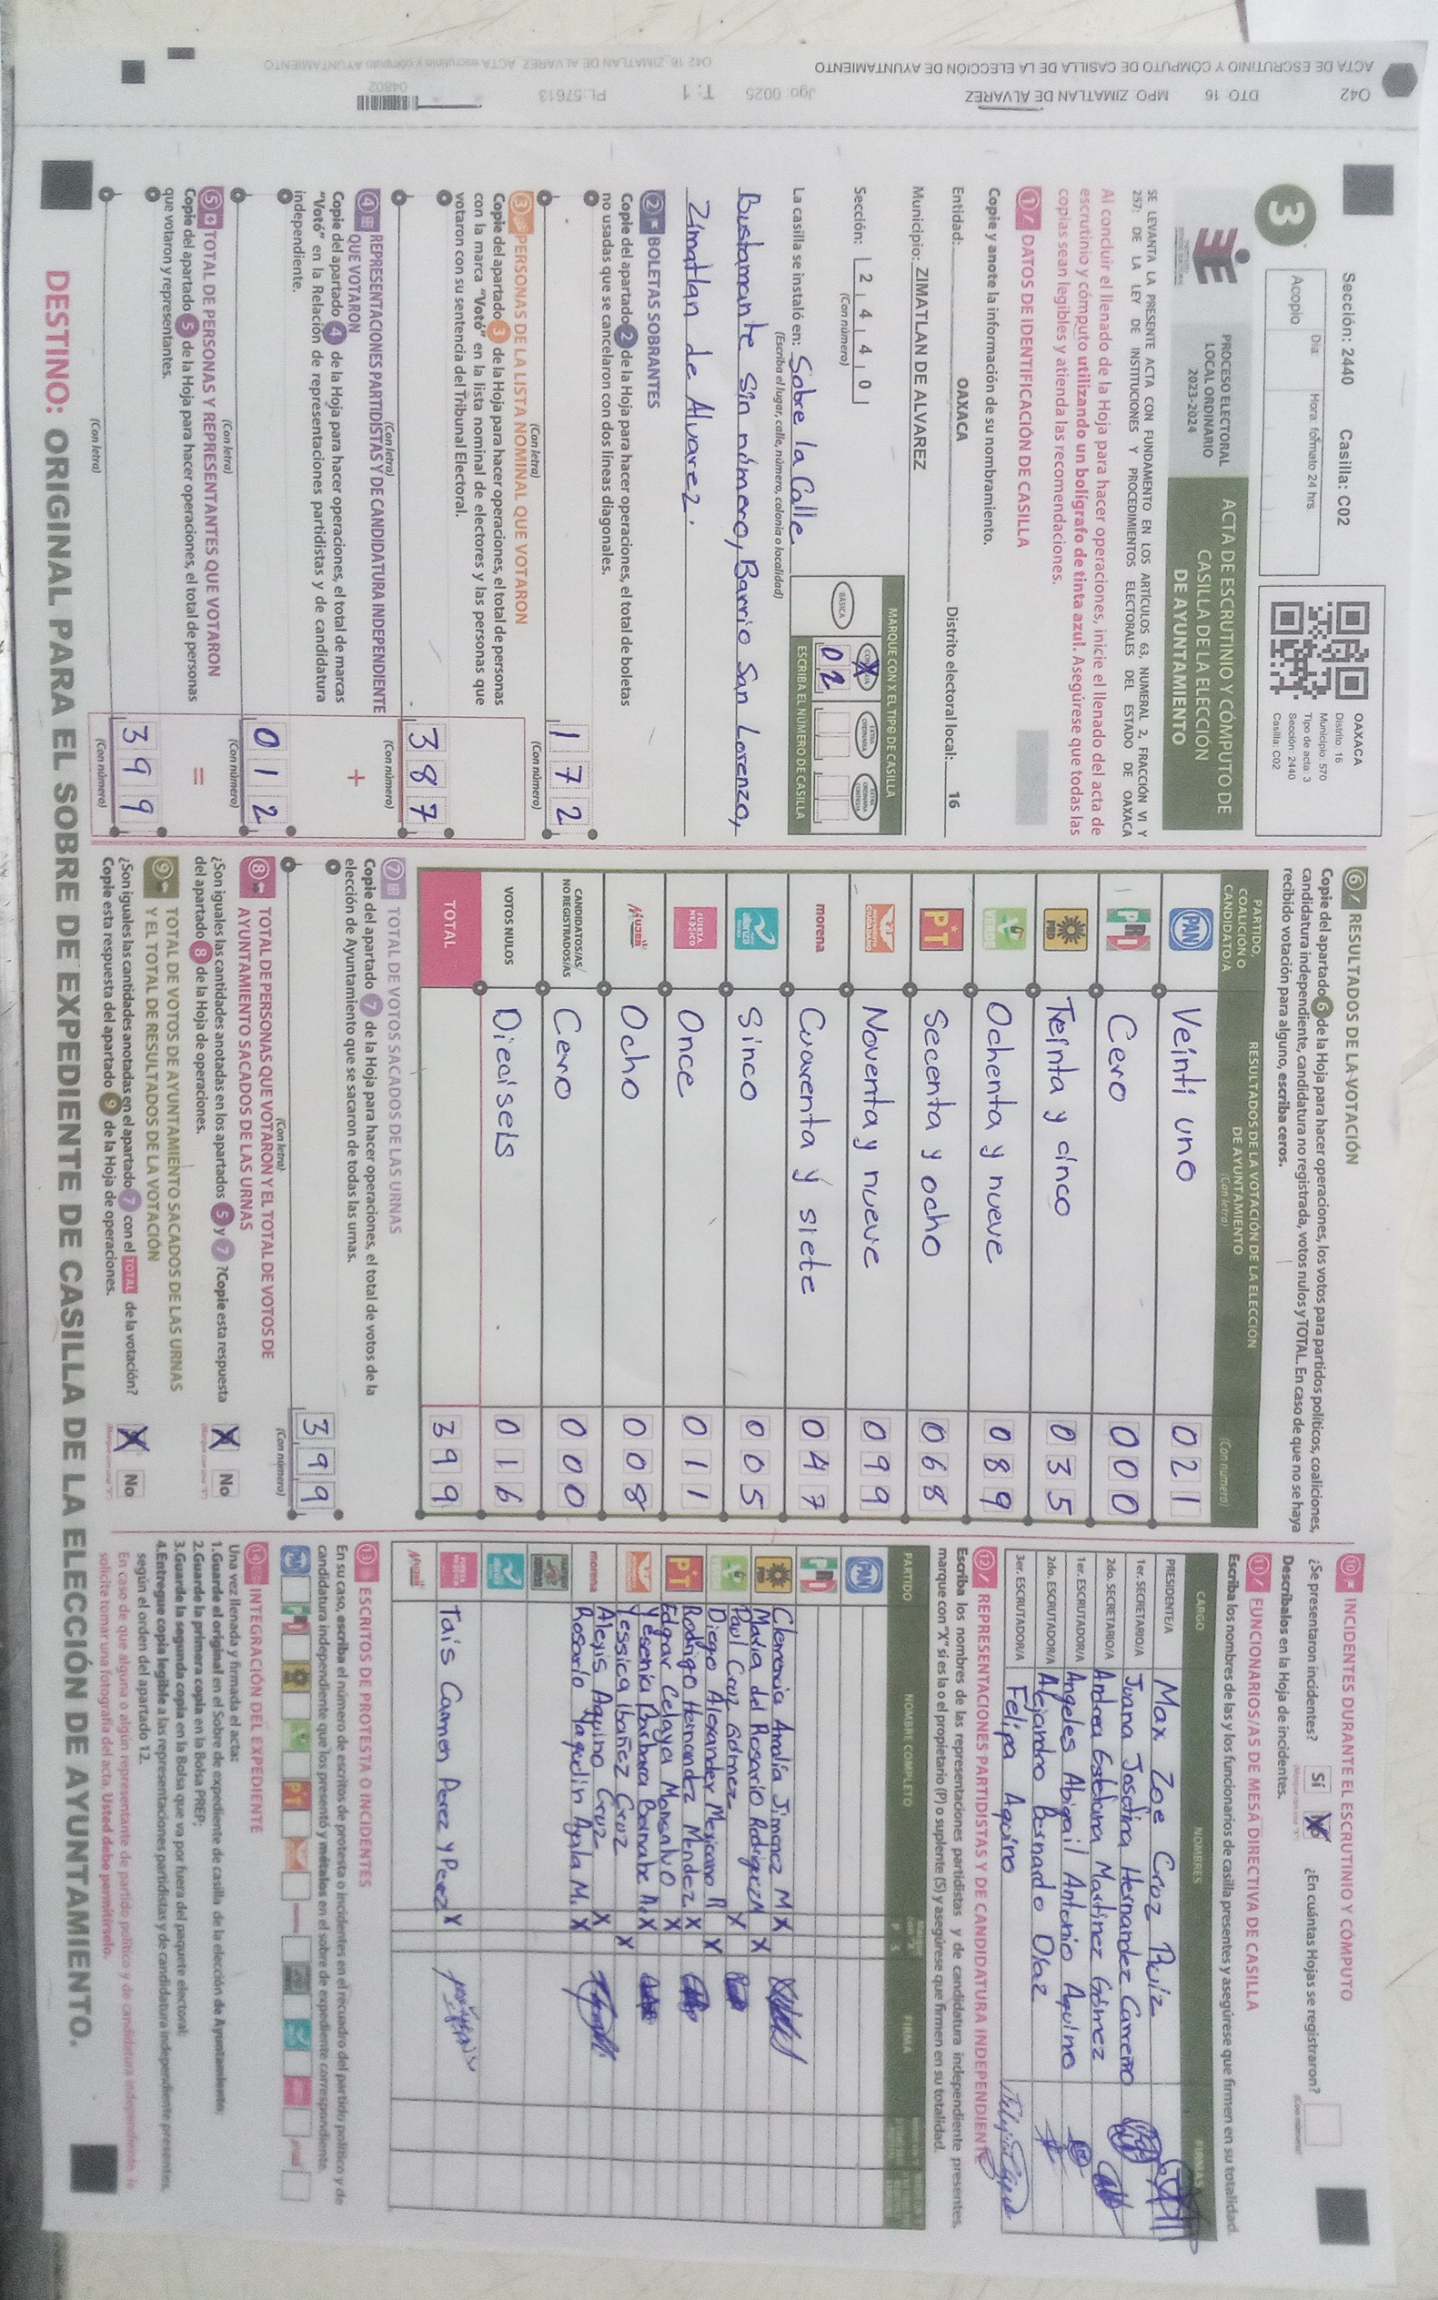 ACTA DE ESCRUTINIO Y CÓMPUTO DE CASILLA DE LA ELECCIÓN DE AYUNTAMIENTO
O42 DTO. 16 MPO. ZIMATLAN DE ALVAREZ Jgo: 0025 T: 1 PL:57613
O42 16 ZIMATLAN DE ALVAREZ ACTA escrutinio y cómputo AYUNTAMIENTO
04802
Sección: 2440 Casilla: C02
Día: Hora: formato 24 hrs
Acopio
3
OAXACA
Distrito: 16
Municipio: 570
Tipo de acta: 3
Sección: 2440
Casilla: C02
PROCESO ELECTORAL
LOCAL ORDINARIO
2023-2024
ACTA DE ESCRUTINIO Y CÓMPUTO DE
CASILLA DE LA ELECCIÓN
DE AYUNTAMIENTO
SE LEVANTA LA PRESENTE ACTA CON FUNDAMENTO EN LOS ARTÍCULOS 63, NUMERAL 2, FRACCIÓN VI Y
257; DE LA LEY DE INSTITUCIONES Y PROCEDIMIENTOS ELECTORALES DEL ESTADO DE OAXACA
Al concluir el llenado de la Hoja para hacer operaciones, inicie el llenado del acta de
escrutinio y cómputo utilizando un bolígrafo de tinta azul. Asegúrese que todas las
copias sean legibles y atienda las recomendaciones.
1 DATOS DE IDENTIFICACIÓN DE CASILLA
Copie y anote la información de su nombramiento.
Entidad: OAXACA Distrito electoral local: 16
Municipio: ZIMATLAN DE ALVAREZ
Sección: 2 4 4 0
(Con número)
MARQUE CON X EL TIPO DE CASILLA
BÁSICA
X
02
ESCRIBA EL NÚMERO DE CASILLA
La casilla se instaló en: Sobre la Calle
(Escriba el lugar, calle, número, colonia o localidad)
Bustamante sin número, Barrio San Lorenzo,
Zimatlan de Alvarez.
2 BOLETAS SOBRANTES
Copie del apartado 2 de la Hoja para hacer operaciones, el total de boletas
no usadas que se cancelaron con dos líneas diagonales.
172
(Con letra) (Con número)
3 PERSONAS DE LA LISTA NOMINAL QUE VOTARON
Copie del apartado 3 de la Hoja para hacer operaciones, el total de personas
con la marca "Votó" en la lista nominal de electores y las personas que
votaron con su sentencia del Tribunal Electoral.
387
(Con letra) (Con número)
4 REPRESENTACIONES PARTIDISTAS Y DE CANDIDATURA INDEPENDIENTE
QUE VOTARON
+
Copie del apartado 4 de la Hoja para hacer operaciones, el total de marcas
"Votó" en la Relación de representaciones partidistas y de candidatura
independiente.
012
(Con letra) (Con número)
5 TOTAL DE PERSONAS Y REPRESENTANTES QUE VOTARON
=
Copie del apartado 5 de la Hoja para hacer operaciones, el total de personas
que votaron y representantes.
399
(Con letra) (Con número)
6 RESULTADOS DE LA VOTACIÓN
Copie del apartado 6 de la Hoja para hacer operaciones, los votos para partidos políticos, coaliciones,
candidatura independiente, candidatura no registrada, votos nulos y TOTAL. En caso de que no se haya
recibido votación para alguno, escriba ceros.
PARTIDO,
COALICIÓN O
CANDIDATO/A
RESULTADOS DE LA VOTACIÓN DE LA ELECCIÓN
DE AYUNTAMIENTO
(Con letra) (Con número)
PAN Veinti uno 021
PRI Cero 000
PRD Teinta y cinco 035
VERDE Ochenta y nueve 089
PT Secenta y ocho 068
MOVIMIENTO CIUDADANO Noventa y nueve 099
morena Cuarenta y siete 047
alianza Sinco 005
FUERZA MÉXICO Once 011
MUJER Ocho 008
CANDIDATOS/AS/
NO REGISTRADOS/AS Cero 000
VOTOS NULOS Diecisels 016
TOTAL 399
7 TOTAL DE VOTOS SACADOS DE LAS URNAS
Copie del apartado 7 de la Hoja para hacer operaciones, el total de votos de la
elección de Ayuntamiento que se sacaron de todas las urnas.
399
(Con letra) (Con número)
8 TOTAL DE PERSONAS QUE VOTARON Y EL TOTAL DE VOTOS DE
AYUNTAMIENTO SACADOS DE LAS URNAS
¿Son iguales las cantidades anotadas en los apartados 5 y 7 ?Copie esta respuesta
del apartado 8 de la Hoja de operaciones.
X No
9 TOTAL DE VOTOS DE AYUNTAMIENTO SACADOS DE LAS URNAS
Y EL TOTAL DE RESULTADOS DE LA VOTACIÓN
¿Son iguales las cantidades anotadas en el apartado 7 con el TOTAL de la votación?
Copie esta respuesta del apartado 9 de la Hoja de operaciones.
X No
10 INCIDENTES DURANTE EL ESCRUTINIO Y CÓMPUTO
¿Se presentaron incidentes? Sí X ¿En cuántas Hojas se registraron?
Descríbalos en la Hoja de incidentes.
11 FUNCIONARIOS/AS DE MESA DIRECTIVA DE CASILLA
Escriba los nombres de las y los funcionarios de casilla presentes y asegúrese que firmen en su totalidad.
CARGO NOMBRES FIRMAS
PRESIDENTE/A Max Zoe Croz Ruiz
1er. SECRETARIO/A Juana Josefina Hernandez Carreño
2do. SECRETARIO/A Andrea Estefana Martinez Gómez
1er. ESCRUTADOR/A Angeles Abigail Antonio Aquino
2do. ESCRUTADOR/A Alejandro Bernardo Olaz
3er. ESCRUTADOR/A Felipa Aquino
12 REPRESENTACIONES PARTIDISTAS Y DE CANDIDATURA INDEPENDIENTE
Escriba los nombres de las representaciones partidistas y de candidatura independiente presentes,
marque con "X" si es la o el propietario (P) o suplente (S) y asegúrese que firmen en su totalidad.
PARTIDO NOMBRE COMPLETO FIRMA
PAN
PRI Clemencia Amalia Jimenez M X
PRD Maria del Rosario Rodriguez M X
Paul Cruz Gómez X
VERDE Diego Alexander Mejicano R X
PT Rodrigo Hernandez Mendez X
Edgar Celaya Monsalvo X
Yesenia Barbara Bernabe A. X
Yessica Ibañez Cruz X
morena Alexis Aquino Cruz X
Rosario Yaquelin Ayala M. X
Tais Carmen Perez y Perez X
MUJER
13 ESCRITOS DE PROTESTA O INCIDENTES
En su caso, escriba el número de escritos de protesta o incidentes en el recuadro del partido político y de
candidatura independiente que los presentó y métalos en el sobre de expediente correspondiente.
14 INTEGRACIÓN DEL EXPEDIENTE
Una vez llenada y firmada el acta:
1.Guarde el original en el Sobre de expediente de casilla de la elección de Ayuntamiento;
2.Guarde la primera copia en la Bolsa PREP;
3.Guarde la segunda copia en la Bolsa que va por fuera del paquete electoral;
4.Entregue copia legible a las representaciones partidistas y de candidatura independiente presentes,
según el orden del apartado 12.
En caso de que alguna o algún representante de partido político y de candidatura independiente, le
solicite tomar una fotografía del acta. Usted debe permitírselo.
DESTINO: ORIGINAL PARA EL SOBRE DE EXPEDIENTE DE CASILLA DE LA ELECCIÓN DE AYUNTAMIENTO.